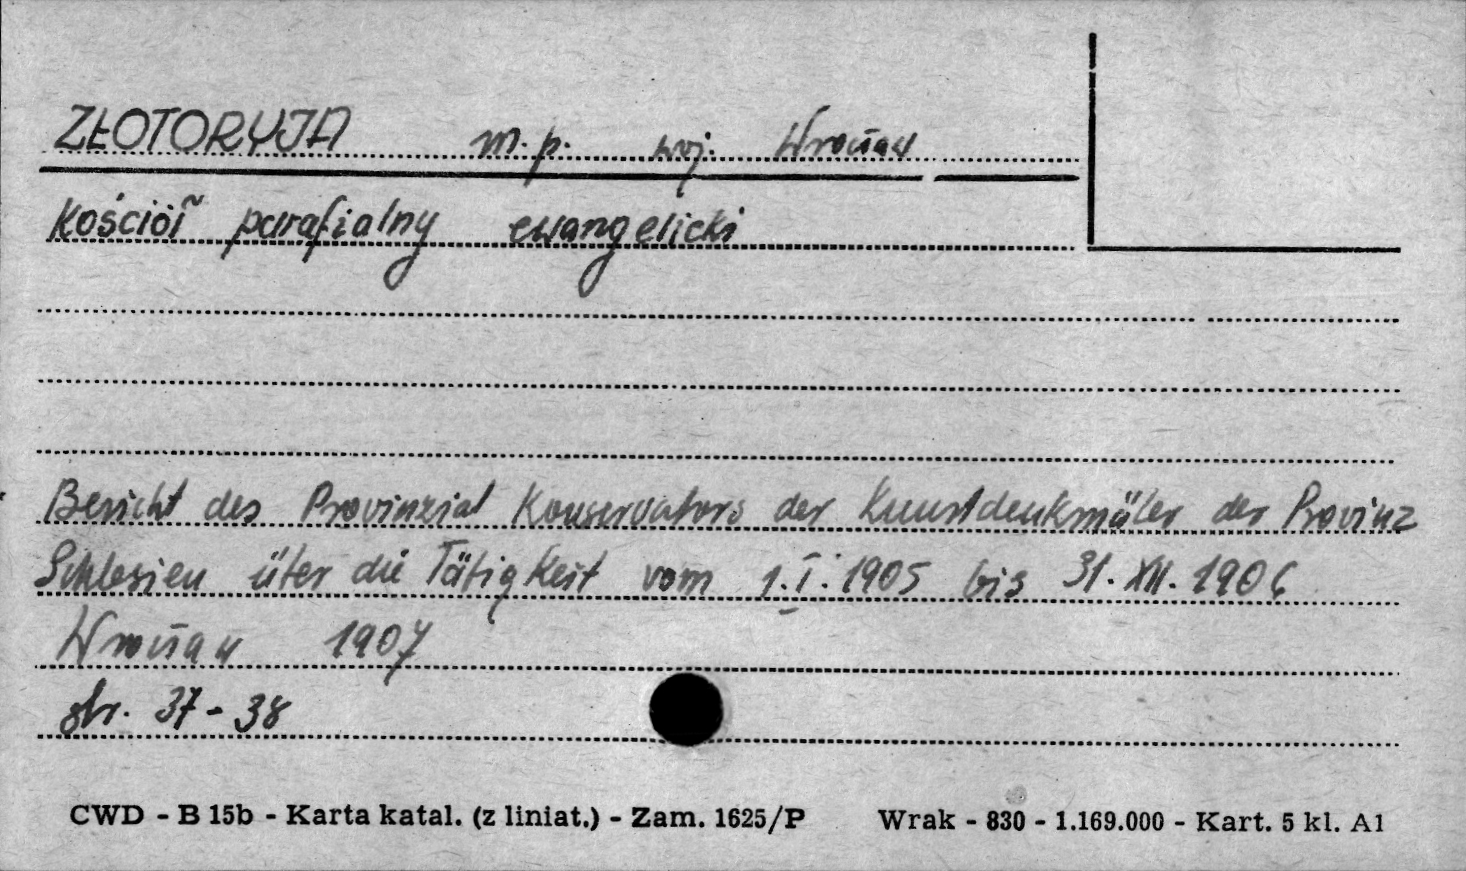 ZŁOTORYJA m.p. woj. Wrocław
Kościół parafialny ewangelicki
Bericht des Provinzial Konservators der Kunstdenkmäler der Provinz
Schlesien über die Tätigkeit vom 1.I.1905 bis 31.XII.1906
Wrocław 1907
str. 37-38
CWD - B 15b - Karta katal. (z liniat.) - Zam. 1625/P Wrak - 830 - 1.169.000 - Kart. 5 kl. A1